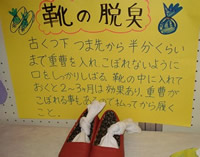 靴の脱臭
古くつ下 つま先から 半分くらい
まで重曹を入れ、こぼれないように
口をしっかりしばる。靴の中に入れて
おくと2~3ヶ月は効果あり、重曹が
こぼれる事もあるので払ってから履く
こと。